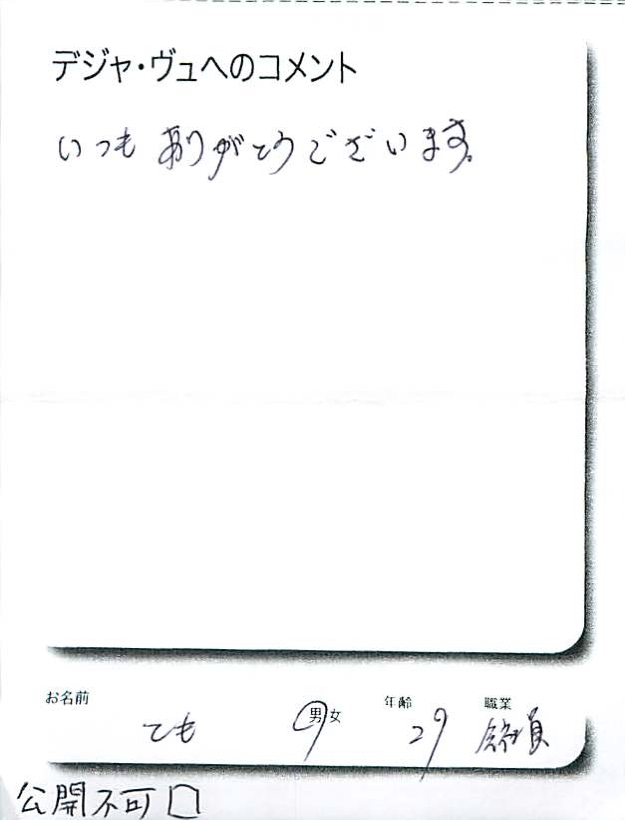 デジャ・ヴュへのコメント
いつもありがとうございます。
お名前 ても 男 女 年齢 29 職業 会社員
公開不可□